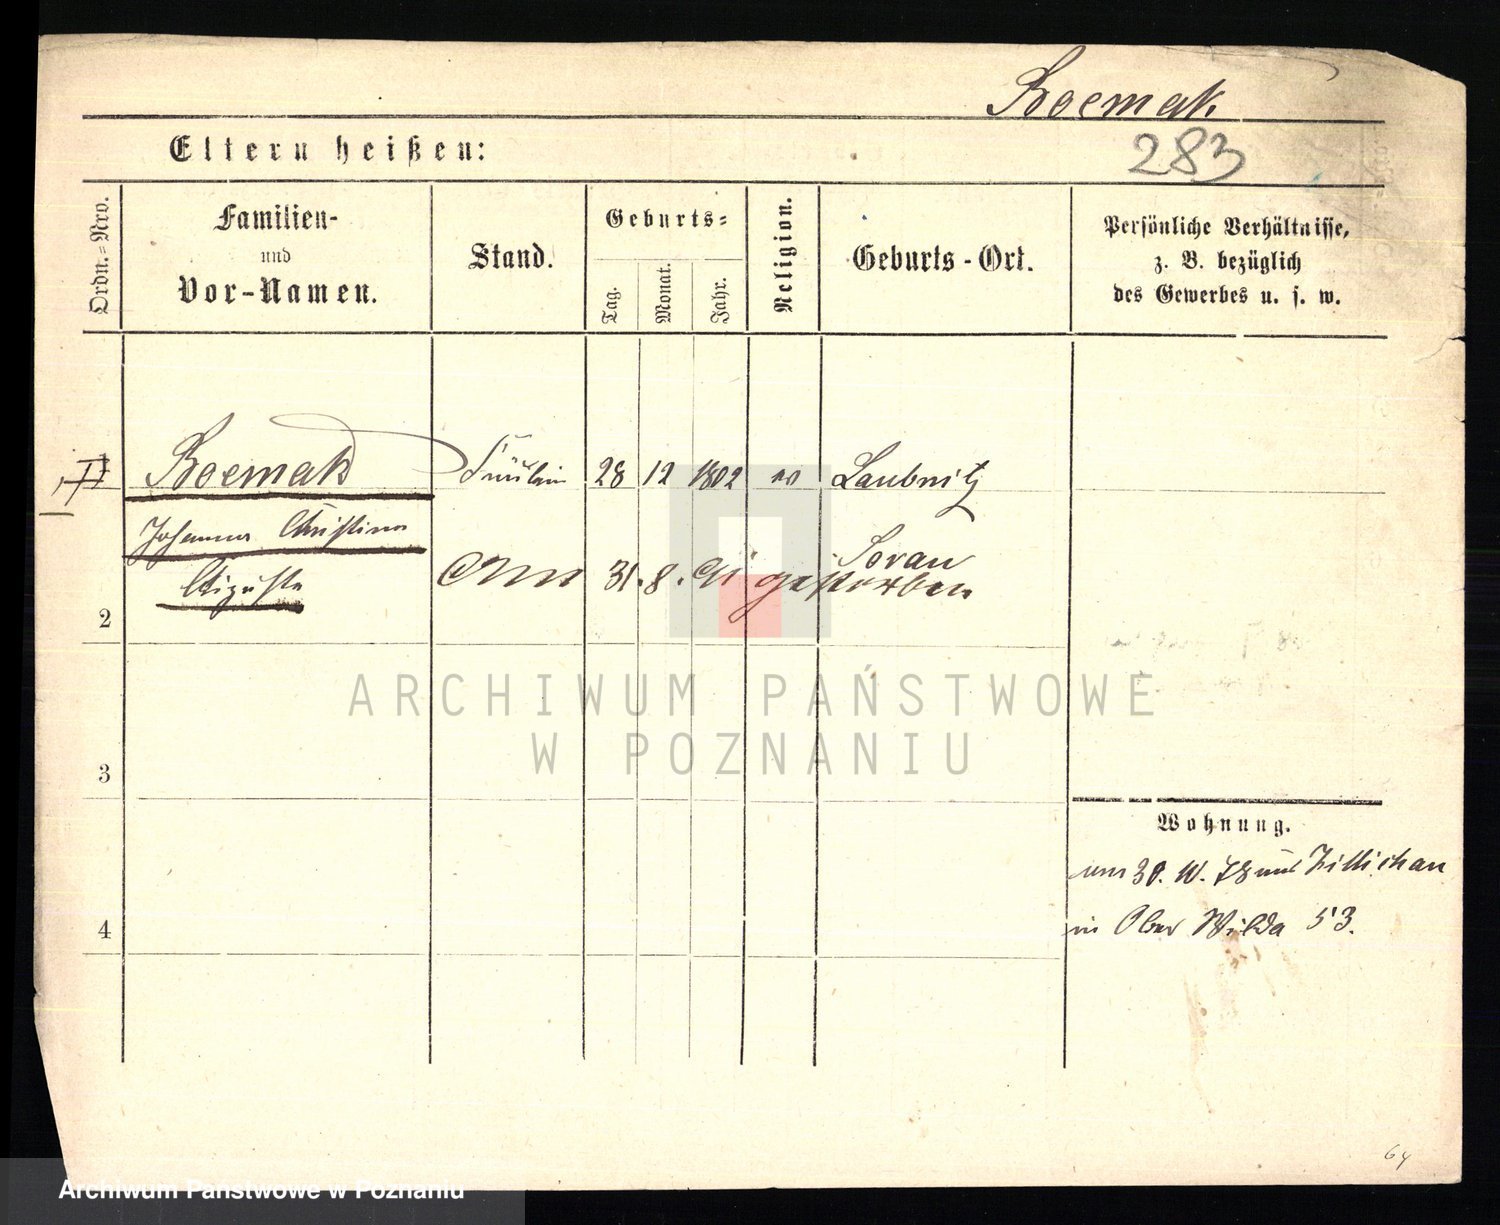 Boemak
Eltern heißen:
283
Ordn.=Nro.
Familien-
und
Vor-Namen.
Stand.
Geburts=
Tag.
Monat.
Jahr.
Religion.
Geburts-Ort.
Persönliche Verhältnisse,
z. B. bezüglich
des Gewerbes u. s. w.
1
Boemak
Fräulein
28
12
1802
ev
Laubnitz
Johanna Christina
Sorau
Auguste
Am 31. 8. 81 gestorben
2
3
4
Wohnung.
30. 10. 78 Züllichau
in Ober Wilda 53.
64
ARCHIWUM PAŃSTWOWE
W POZNANIU
Archiwum Państwowe w Poznaniu